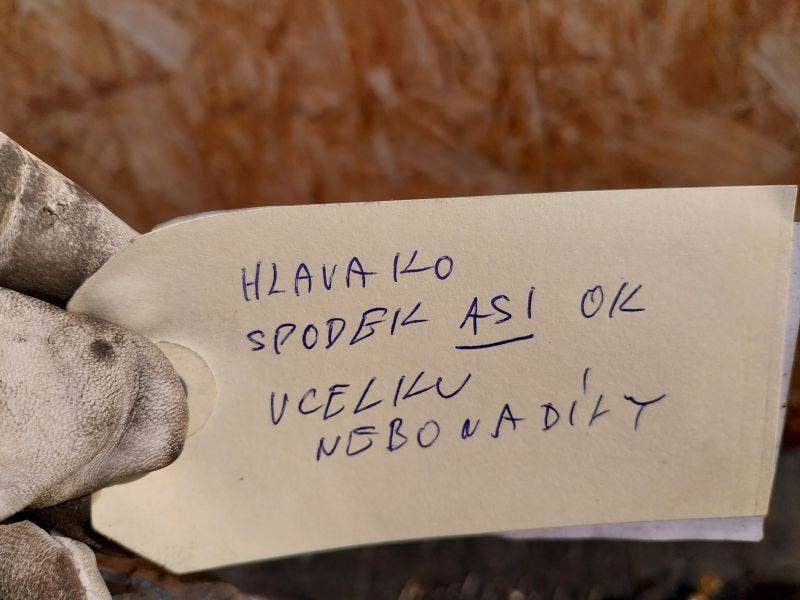 HLAVA KO
SPODEK ASI OK
VCELKU
NEBO NA DÍLY